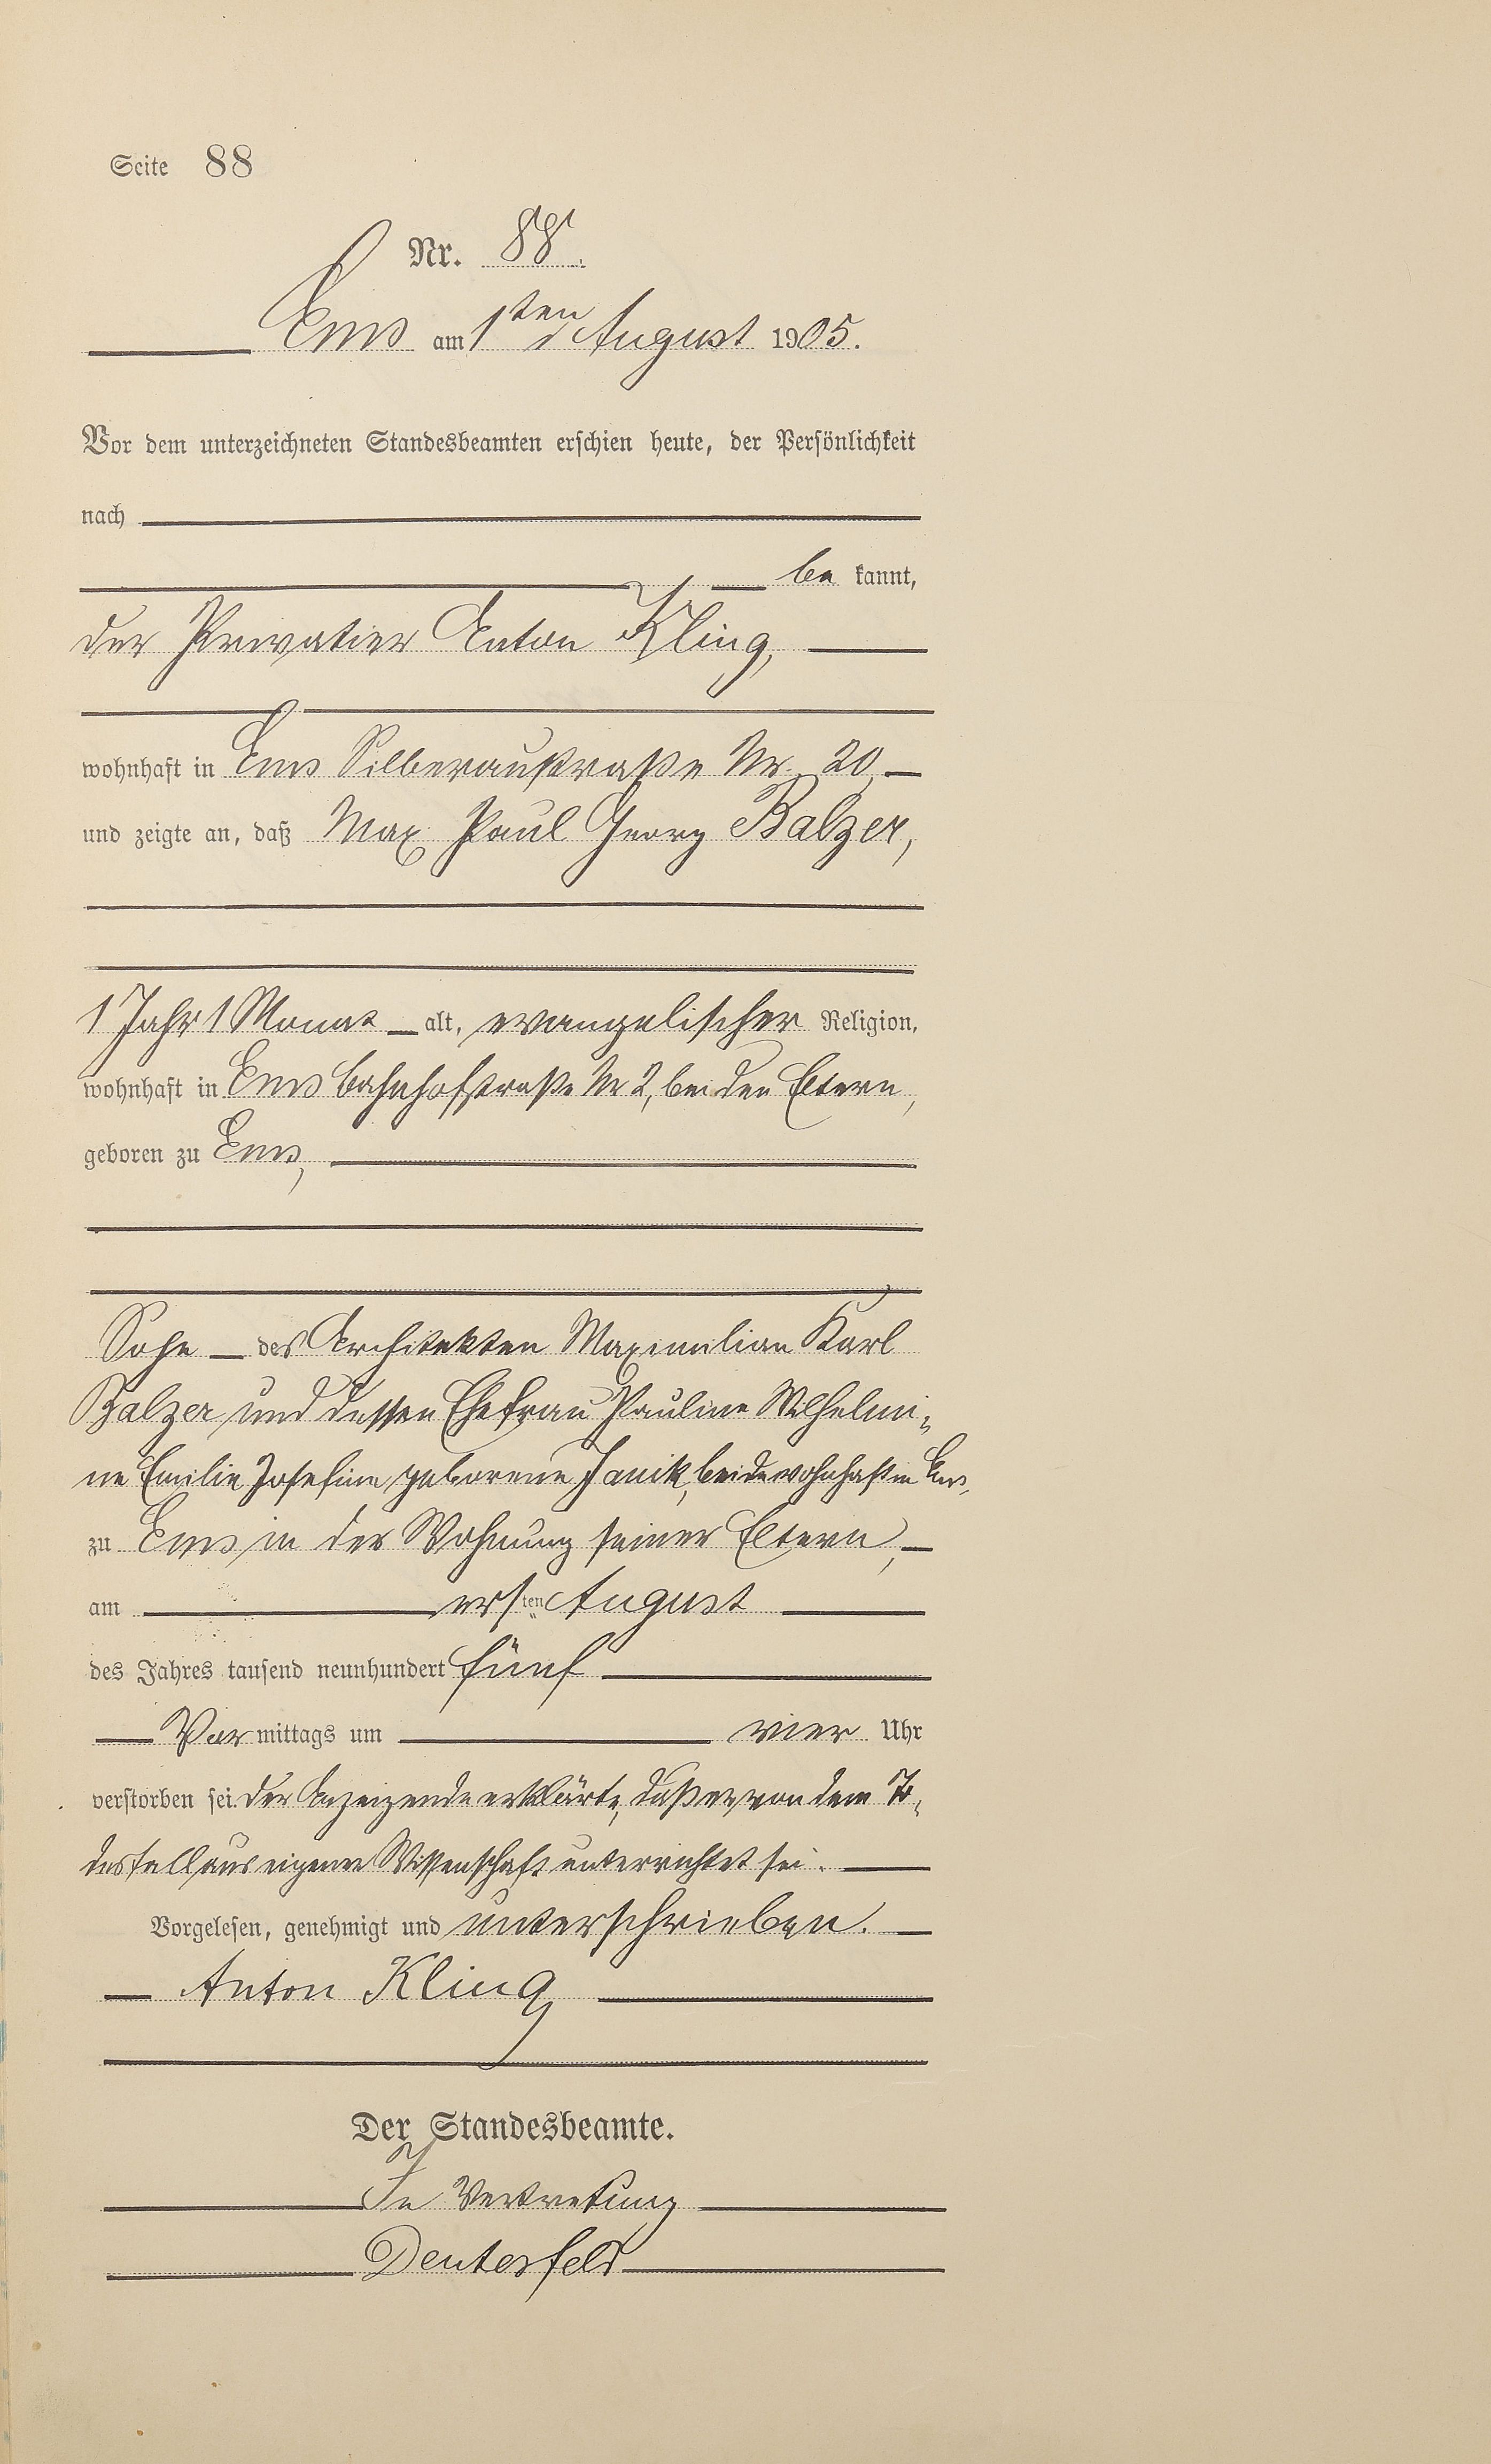 Seite 88
Nr. 88.
Ems am 1ten August 1905.
Vor dem unterzeichneten Standesbeamten erschien heute, der Persönlichkeit
nach
be kannt,
der Privatier Anton Kling,
wohnhaft in Ems Silberaustraße Nr. 20,
und zeigte an, daß Max Paul Georg Balzer,
1 Jahr 1 Monat alt, evangelischer Religion,
wohnhaft in Ems Bahnhofstraße Nr 2, bei den Eltern,
geboren zu Ems,
Sohn des Architekten Maximilian Karl
Balzer und dessen Ehefrau Pauline Wilhelmi-
ne Emilie Josefine geborene Janik, beide wohnhaft in Ems,
zu Ems in der Wohnung seiner Eltern,
am ersten August
des Jahres tausend neunhundert fünf
Vor mittags um vier Uhr
verstorben sei. Der Anzeigende erklärte, daß er von dem To-
desfall aus eigener Wissenschaft unterrichtet sei.
Vorgelesen, genehmigt und unterschrieben.
Anton Kling
Der Standesbeamte.
In Vertretung
Deutesfeld